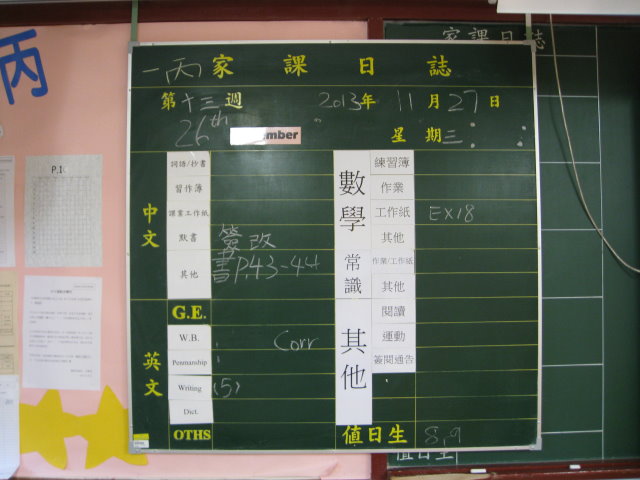 丙
家課日誌
一丙 家課日誌
第十三週 2013年 11月27日
26th
mber
星期三
中文
詞語/抄書
習作簿
課業工作紙
默書 簽改
其他 書P.43-44
G.E.
英文
W.B. Corr
Penmanship
Writing (5)
Dict.
OTHS
數學
練習簿
作業
工作紙 EX18
其他
常識
作業/工作紙
其他
其他
閱讀
運動
簽閱通告
值日生 8,9
值日生